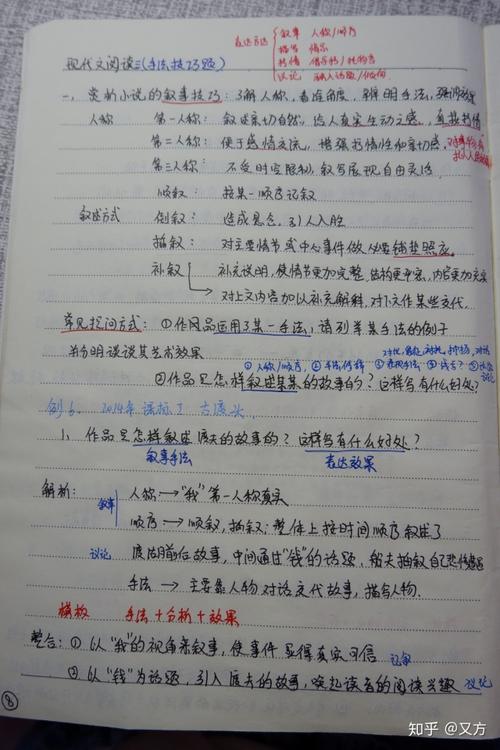 表达方式 叙事 人称/顺序
描写 情节
抒情 借景抒/托物言
议论 融入话题/倾向
现代文阅读三(手法技巧题)
一、赏析小说的叙事技巧:了解人称,看准角度,弄明手法,强调效果
人称 第一人称: 叙述亲切自然,给人真实生动之感,直接抒情
第二人称: 便于感情交流,增强抒情性和亲切感,
第三人称: 不受时空限制,叙写展现自由灵活
顺叙: 按某一顺序记叙
叙述方式 倒叙: 造成悬念,引人入胜
插叙: 对主要情节或中心事件做必要铺垫照应。
补叙 补充说明,使情节更加完整,结构更严密,内容更加充实
对上文内容加以补充解释,对下文作某些交代。
常见提问方式:①作品运用了某一手法,请列举某手法的例子
并简明谈谈其艺术效果
①人称/顺序 ②手法修辞 ③表现手法
②作品是怎样叙述某某的故事的?这样写有什么好处?
例6. 2014年 课标I 古渡头
1、作品是怎样叙述渡夫的故事的?这样写有什么好处?
叙事手法 表达效果
解析: 叙事 人称→“我”第一人称真实
顺序→顺叙,插叙;整体上按时间顺序叙述了
议论 渡湖前后故事,中间通过“钱”的话题,船夫插叙自己悲惨遭遇
手法→主要靠人物对话交代故事,描写人物.
模板 手法+分析+效果
整合:①以“我”的视角来叙事,使事件显得真实可信 记叙
②以“钱”为话题,引入渡夫的故事,唤起读者的阅读兴趣 议论
⑧
知乎 @又方